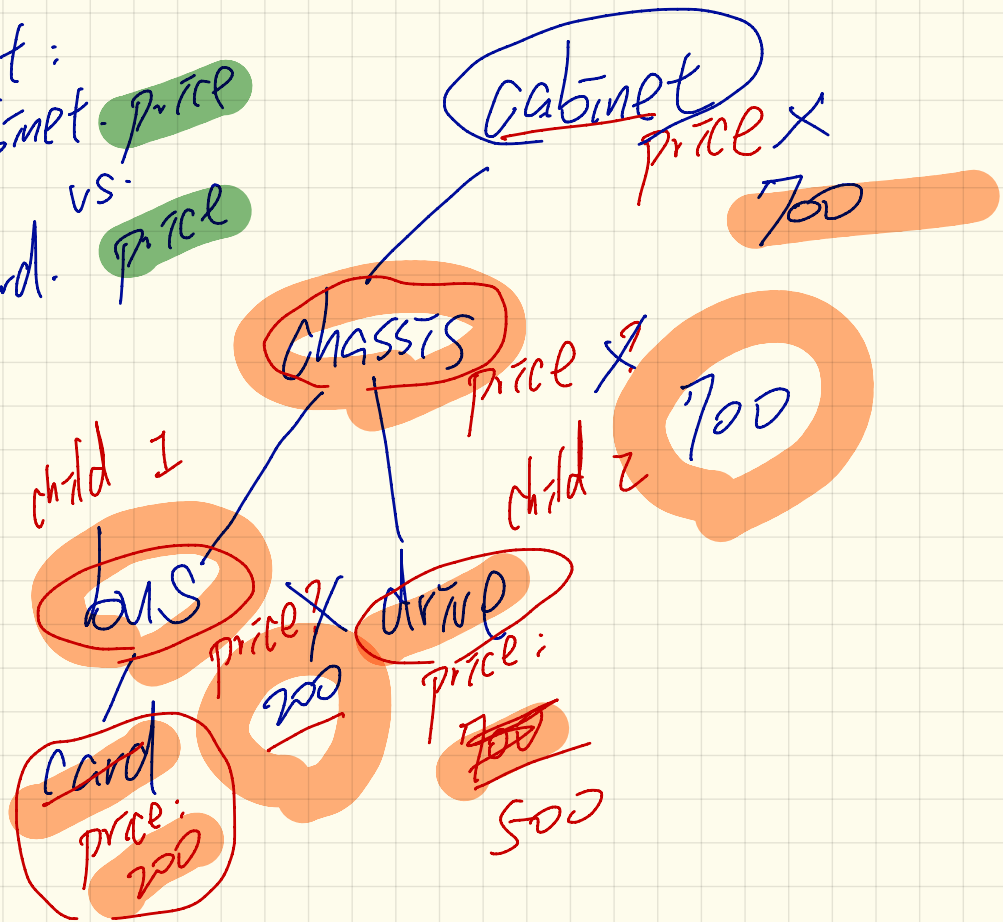 t:
inet. price
vs.
rd. price
cabinet
price X
700
chassis
price ?
700
child 1
child 2
bus
price?
200
drive
price:
700
500
card
price:
200